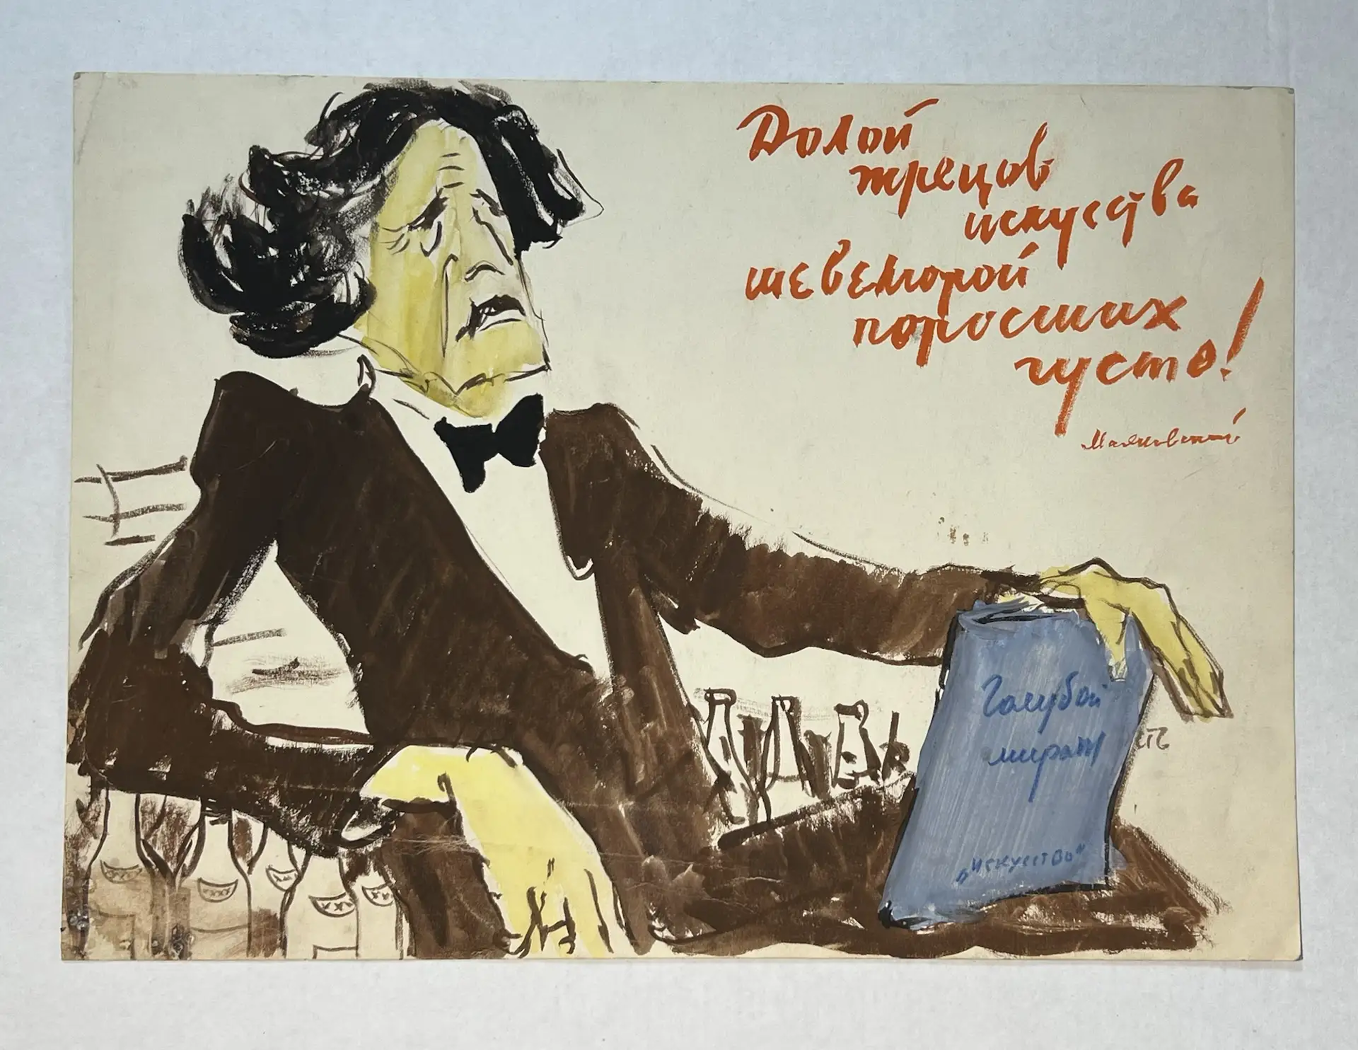 Долой
жрецов
искусства
шевелюрой
поросших
густо!
Маяковский
Голубой
мираж
"искусство"
xxx
xxx
xxx
xx